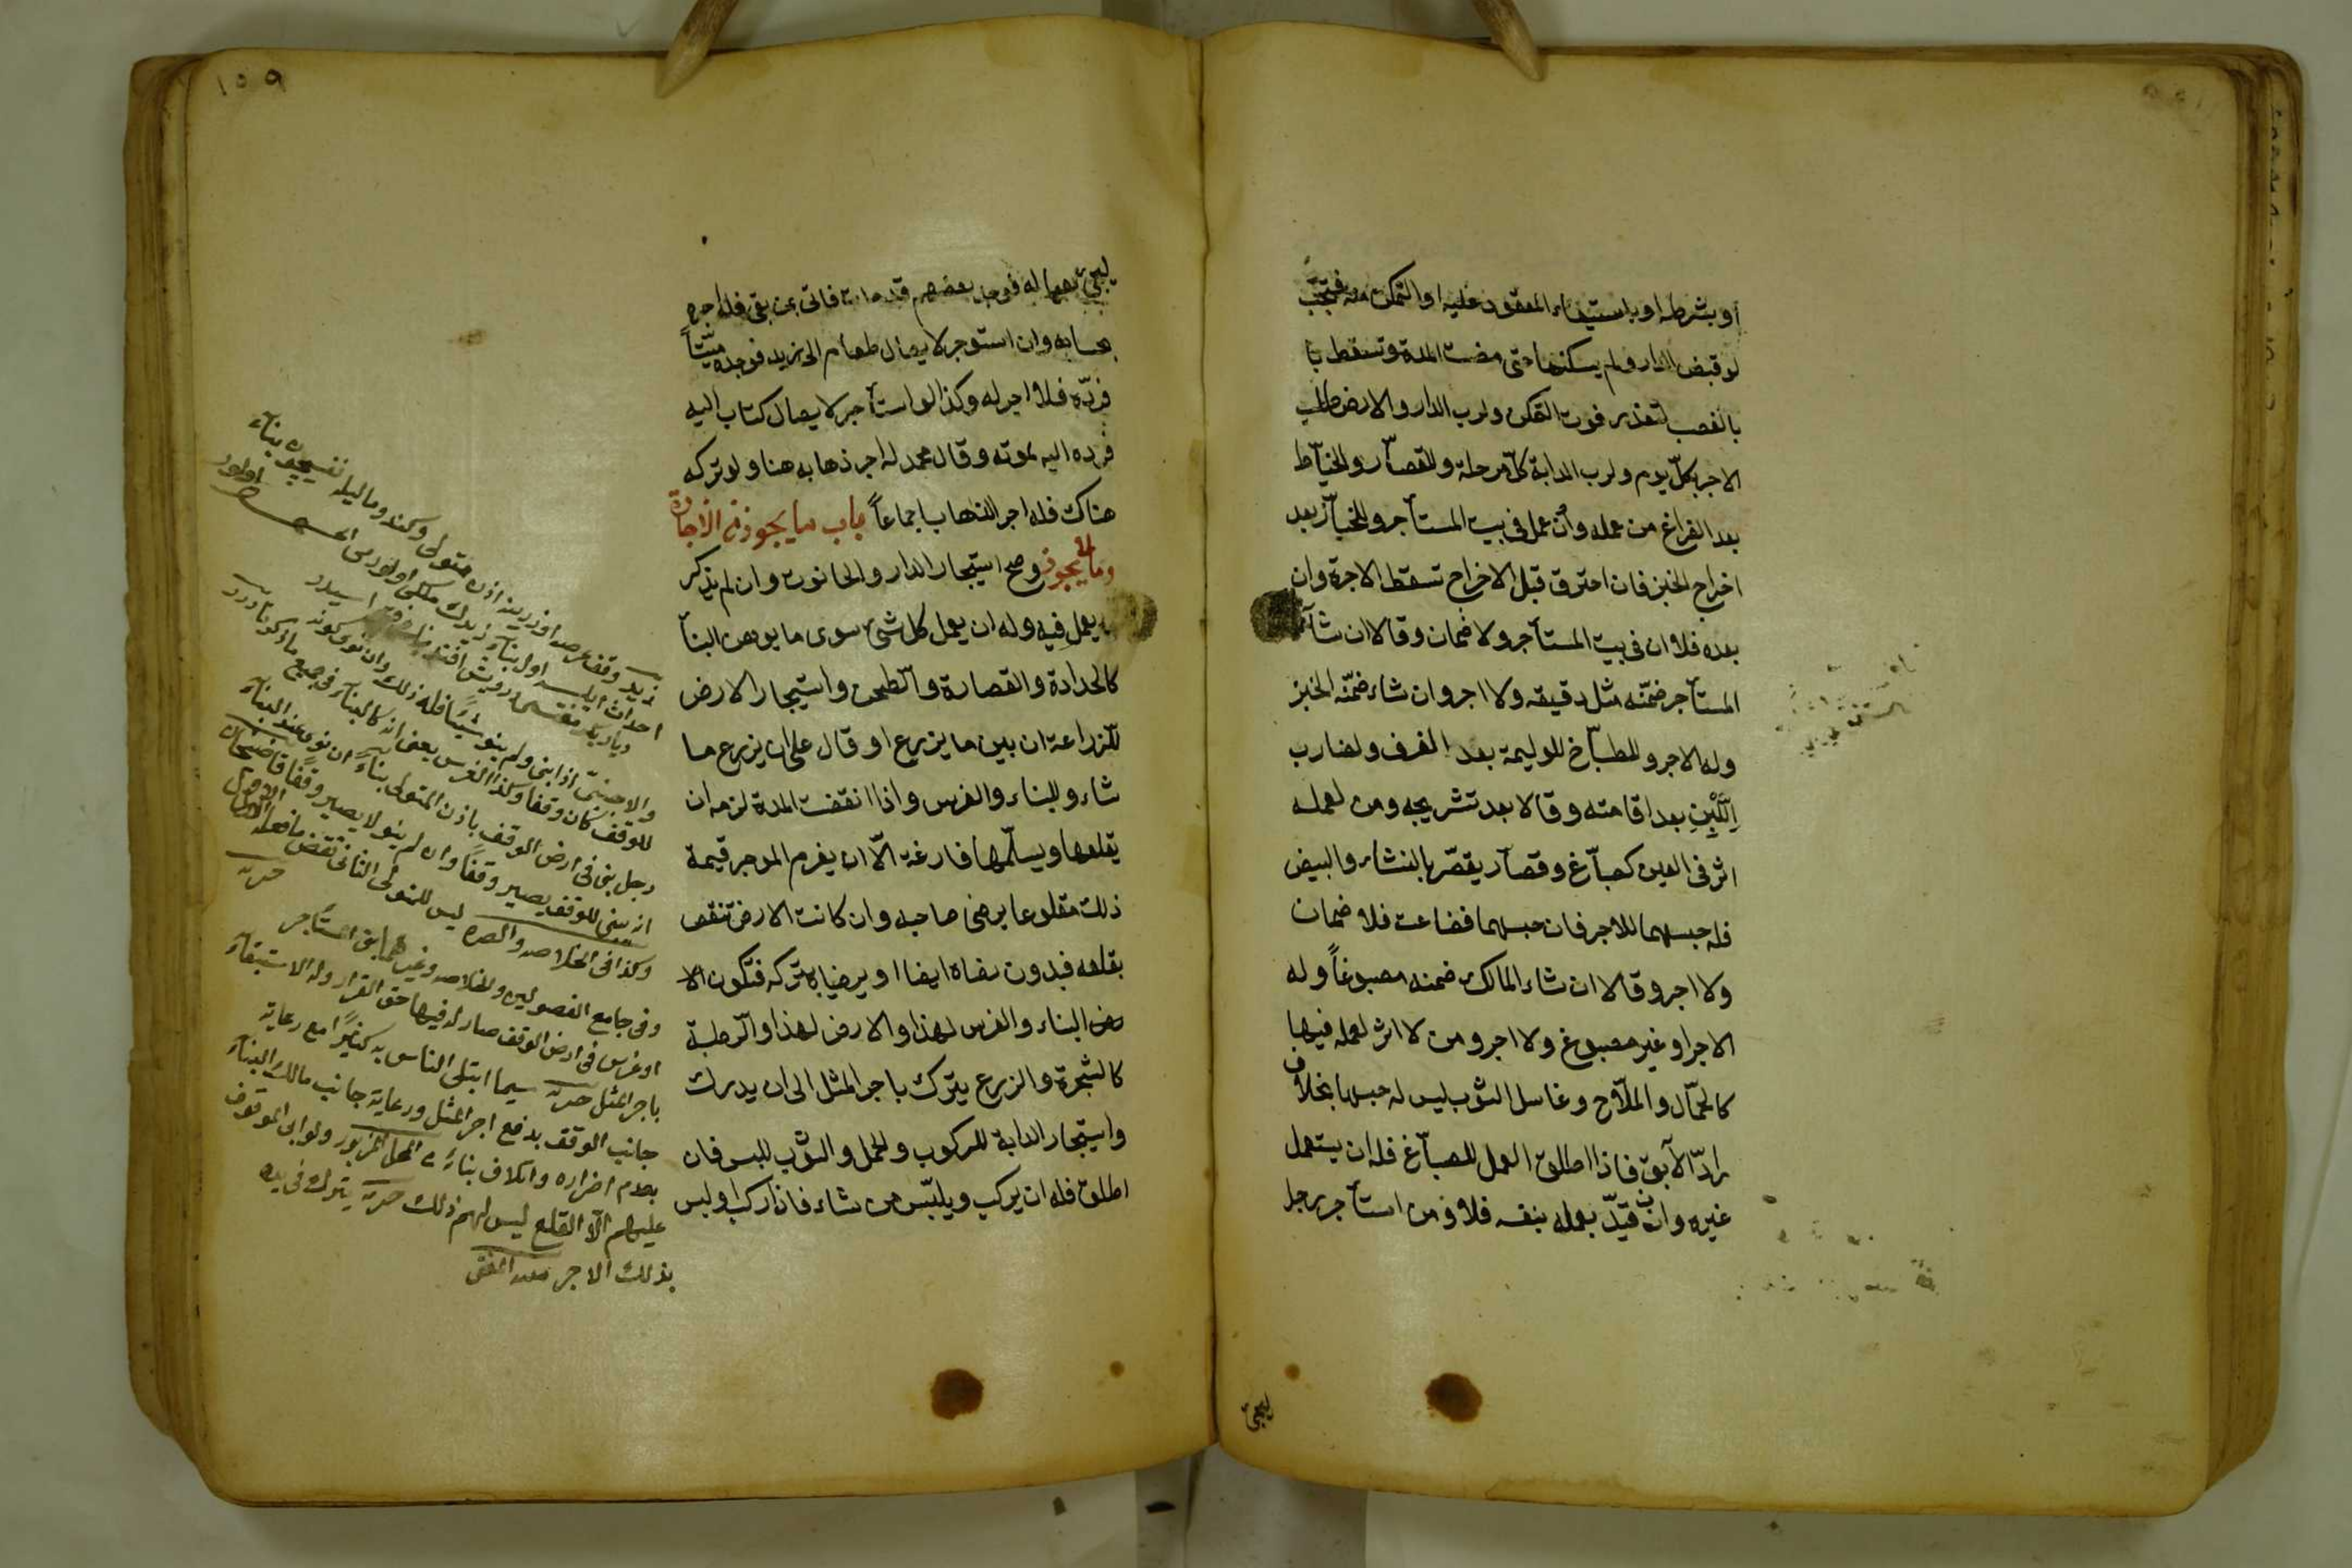 أو بشرطه او باستيفاء المعقود عليه او التمكن منه فتجب
لو قبض الدار ولم يسكنها حتى مضت المدة وتسقط با
بالغصب لتعذر فوت التمكن ولرب الدار والارض طلب
الاجر بكلّ يوم ولرب الدابة كلّ مرحلة وللقصّار والخيّاط
بعد الفراغ من عمله وان عمل فى بيت المستأجر وللخبّاز بعد
اخراج الخبز فان احترق قبل الاخراج تسقط الاجرة وان
بعده فلا ان فى بيت المستأجر ولا ضمان وقالا ان شآء
المستأجر ضمّنه مثل دقيقه ولا اجر وان شاء ضمّنه الخبز
وله الاجر وللطبّاخ للوليمة بعد الغرف ولضارب
اللَّبِنِ بعد اقامته وقالا بعد تشريجه ومن لعمله
اثر فى العين كصبّاغ وقصّار يقصّر بالنشاء والبيض
فله حبسهما للاجر فان حبسهما فضاعت فلا ضمان
ولا اجر وقالا ان شاء المالك ضمنه مصبوغاً وله
الاجر او غير مصبوغ ولا اجر ومن لا اثر لعمله فيها
كالحمّال والملّاح وغاسل الثوب ليس له حبسها بخلاف
رادّ الآبق فاذا اطلق العمل للصبّاغ فله ان يستعمل
غيره وان قيّد بعمله بنفسه فلا ومن استأجر رجل
ليجئ
١٥٩
ليجئ بعياله فوجد بعضهم قد مات فاتى بمن بقى فله اجره
بحسابه وان استوجر لايصال طعام الى زيد فوجده ميّتاً
فردّه فلا اجر له وكذا لو استأجر لايصال كتاب اليه
فرده اليه لموته وقال محمد له اجر ذهابه هنا ولو تركه
هناك فله اجر الذهاب اجماعاً باب ما يجوز من الاجارة
وما لا يجوز وصح استيجار الدار والحانوت وان لم يذكر
ما يعمل فيه وله ان يعمل كل شئ سوى ما يوهن البنآ
كالحدادة والقصارة والطحن واستيجار الارض
للزراعة ان بين ما يزرع او قال على ان يزرع ما
شاء وللبناء والغرس واذا انقضت المدة لزمه ان
يقلعها ويسلّمها فارغة الّا ان يغرم الموجر قيمة
ذلك مقلوعا برضى صاحبه وان كانت الارض تنقص
بقلعه فبدون رضاه ايضا او يرضيا بتركه فتكون الا
رض البناء والغرس لهذا والارض لهذا والرطبة
كالشجرة والزرع يترك باجر المثل الى ان يدرك
واستيجار الدابة للركوب والحمل والثوب للبس فان
اطلق فله ان يركب ويلبّس من شاء فاذا ركب او لبس
زيد وقف عرصه اوزرينه اذن متولى وكندو ماليله نفسيچون بناء
احداث ايلسه اول بناء زيدك ملكى اولورمى اولور
والاجنبىّ اذا بنى ولم ينو شيئًا فله ذلك وان نوى كونه
للوقف كان وقفا وكذا الغرس يعنى انه كالبناء فى جميع ما ذكرنا
رجل بنى فى ارض الوقف باذن المتولى بناءً ان نوى عند البناء
انه بنى للوقف يصير وقفًا وان لم ينو لا يصير وقفًا قاضيخان
وكذا فى الخلاصه ليس للمتولى الثانى نقض ما فعله الاول
وفى جامع الفصولين والخلاصه وغيرهما بنى المستأجر
او غرس فى ارض الوقف صار له فيها حق القرار وله الاستبقاء
باجر المثل سيما ابتلى الناس به كثيرًا مع رعاية
جانب الوقف بدفع اجر المثل ورعاية جانب مالك البناء
بعدم اضراره واتلاف بنائه على المحل المزبور ولو ابى الموقوف
عليهم الّا القلع ليس لهم ذلك يترك فى يده
بذلك الاجر